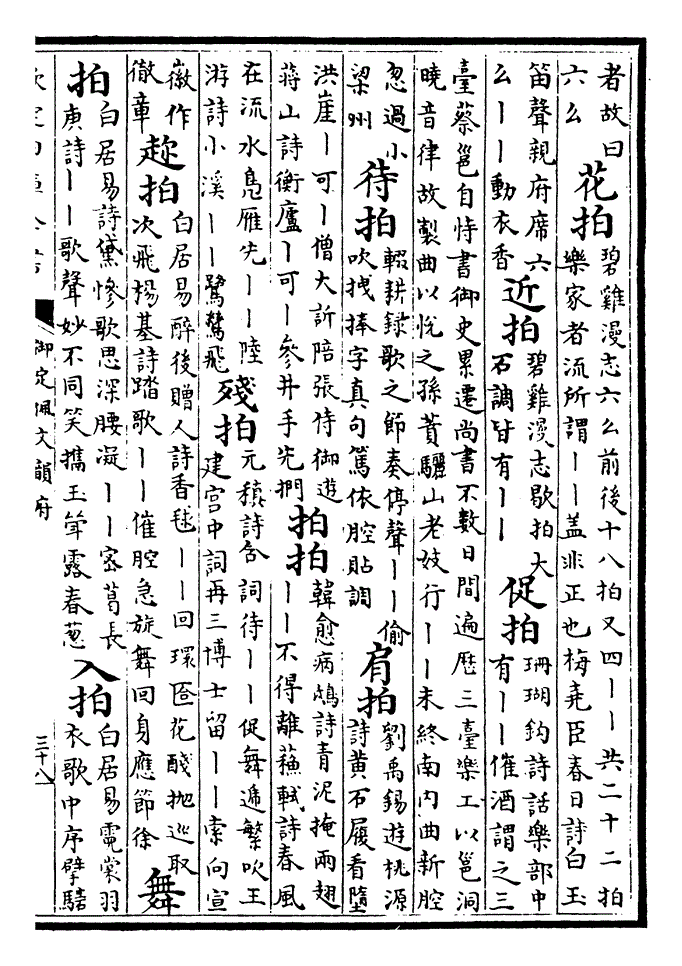 者故曰
六幺
花拍
碧雞漫志六幺前後十八拍又四丨丨共二十二拍
樂家者流所謂丨丨蓋非正也梅堯臣春日詩白玉
笛聲親府席六
幺丨丨動衣香
近拍
碧雞漫志歇拍大
石調皆有丨丨
促拍
珊瑚鈎詩話樂部中
有丨丨催酒謂之三
臺蔡邕自恃書御史累遷尚書不數日間遍歷三臺樂工以邕洞
曉音律故製曲以悅之孫蕡驪山老妓行丨丨未終南内曲新腔
忽過小
梁州
待拍
輟耕録歌之節奏停聲丨丨偷
吹拽捧字真句篤依腔貼調
肩拍
劉禹錫遊桃源
詩黄石履看墮
洪崖丨可丨僧大訢陪張侍御遊
蔣山詩衡廬丨可丨參井手先捫
拍拍
韓愈病鴟詩青泥掩兩翅
丨丨不得離蘇軾詩春風
在流水鳬雁先丨丨陸
游詩小溪丨丨鷺鶿飛
殘拍
元稹詩含詞待丨丨促舞遞繁吹王
建宫中詞再三博士留丨丨索向宣
徽作
徹章
趂拍
白居易醉後贈人詩香毬丨丨回環匼花醆抛巡取
次飛楊基詩踏歌丨丨催腔急旋舞回身應節徐
舞
拍
白居易詩黛慘歌思深腰凝丨丨密葛長
庚詩丨丨歌聲妙不同笑攜玉筇露春葱
入拍
白居易霓裳羽
衣歌中序擘騞
御定佩文韻府
三十八